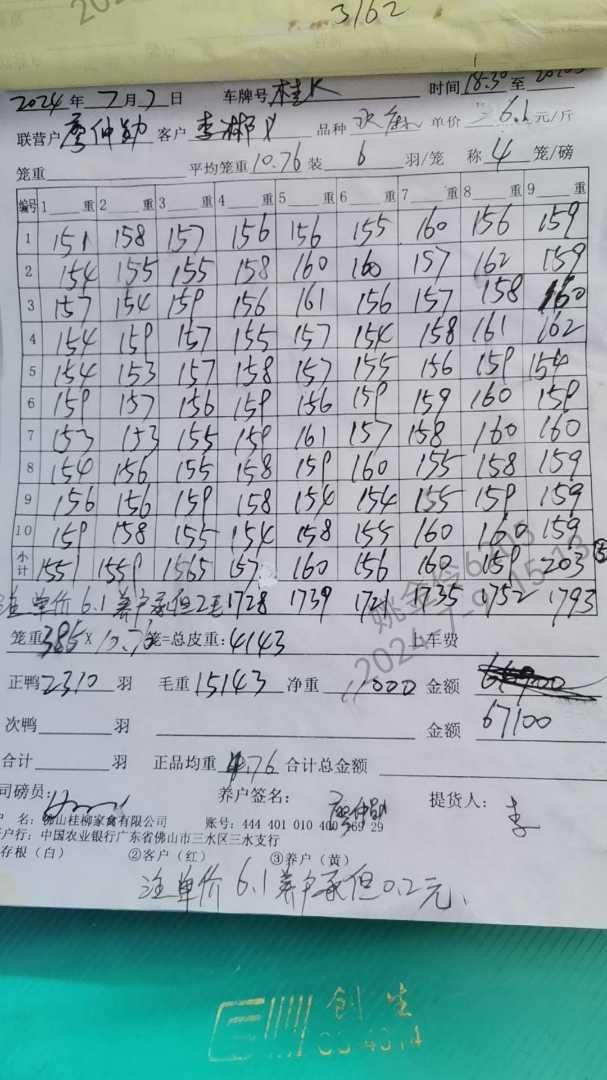 3162
2024年7月7日 车牌号桂K 时间18:30至
联营户廖仲勋 客户李彬 品种 单价6.1元/斤
笼重 平均笼重10.76装6羽/笼 称4笼/磅
编号 1 重 2 重 3 重 4 重 5 重 6 重 7 重 8 重 9 重
1 151 158 157 156 156 155 160 156 159
2 154 155 155 158 160 160 157 162 159
3 157 154 159 156 161 156 157 158 160
4 154 159 157 155 157 154 158 161 162
5 154 153 157 158 157 155 156 159 154
6 159 157 156 159 156 159 159 160 159
7 153 153 155 159 161 157 158 160 160
8 154 156 155 158 159 160 155 158 159
9 156 156 159 158 154 154 155 159 159
10 159 158 155 154 158 155 160 160 159
小计 1551 1559 1565 157 160 156 160 159 203 ⑤
注单价6.1养户承但2毛 1728 1739 1721 1735 1752 1793
笼重385×10.76笼=总皮重:4143 上车费
正鸭2310羽 毛重15143 净重11000 金额
67100
次鸭 羽 金额
合计 羽 正品均重4.76 合计总金额
司磅员: 养户签名:廖仲勋 提货人:李
户 名:佛山桂柳家禽有限公司 账号:444 401 010 400 369 29
户行:中国农业银行广东省佛山市三水区三水支行
存根(白) ②客户(红) ③养户(黄)
注单价6.1养户承但0.2元、
创生